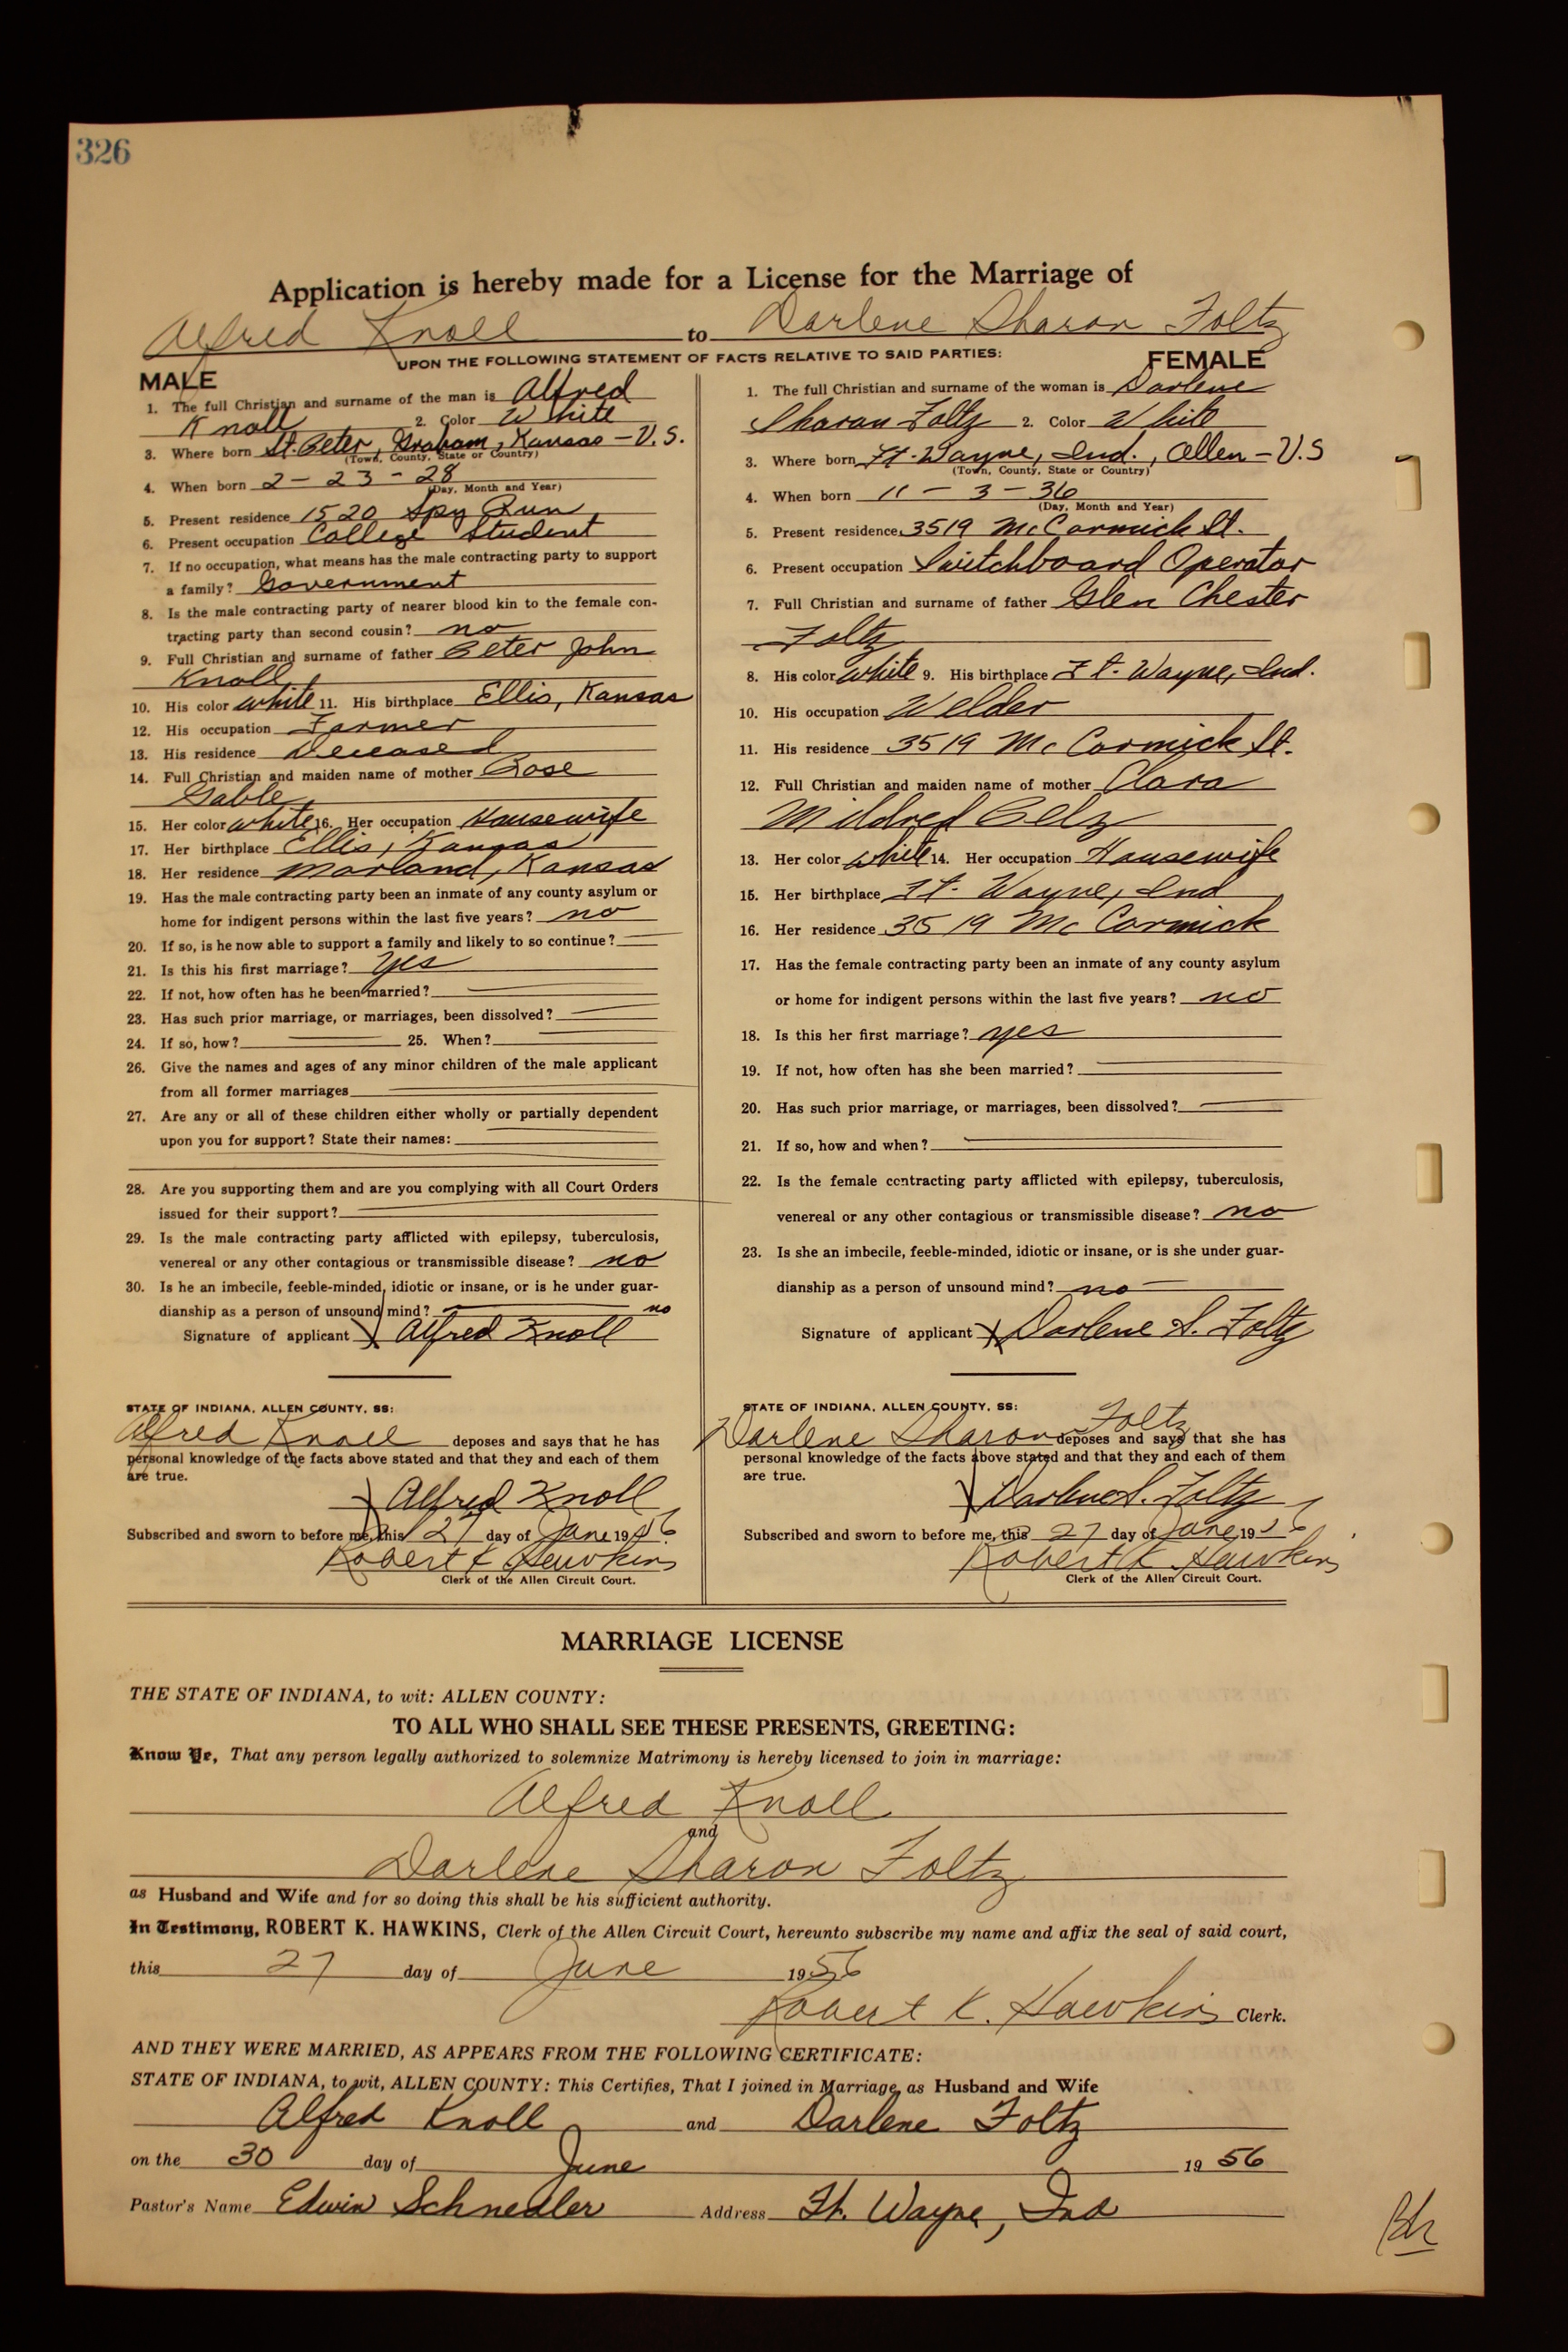 326
Application is hereby made for a License for the Marriage of
Alfred Knoll to Darlene Sharon Foltz
UPON THE FOLLOWING STATEMENT OF FACTS RELATIVE TO SAID PARTIES:
MALE
1. The full Christian and surname of the man is Alfred
Knoll 2. Color White
3. Where born St. Peter, Graham, Kansas - U.S.
(Town, County, State or Country)
4. When born 2 - 23 - 28
(Day, Month and Year)
5. Present residence 1520 Spy Run
6. Present occupation College Student
7. If no occupation, what means has the male contracting party to support
a family? Government
8. Is the male contracting party of nearer blood kin to the female con-
tracting party than second cousin? no
9. Full Christian and surname of father Peter John
Knoll
10. His color white 11. His birthplace Ellis, Kansas
12. His occupation Farmer
13. His residence Deceased
14. Full Christian and maiden name of mother Rose
Gable
15. Her color white 16. Her occupation Housewife
17. Her birthplace Ellis, Kansas
18. Her residence Morland, Kansas
19. Has the male contracting party been an inmate of any county asylum or
home for indigent persons within the last five years? no
20. If so, is he now able to support a family and likely to so continue?
21. Is this his first marriage? yes
22. If not, how often has he been married?
23. Has such prior marriage, or marriages, been dissolved?
24. If so, how? 25. When?
26. Give the names and ages of any minor children of the male applicant
from all former marriages
27. Are any or all of these children either wholly or partially dependent
upon you for support? State their names:
28. Are you supporting them and are you complying with all Court Orders
issued for their support?
29. Is the male contracting party afflicted with epilepsy, tuberculosis,
venereal or any other contagious or transmissible disease? no
30. Is he an imbecile, feeble-minded, idiotic or insane, or is he under guar-
dianship as a person of unsound mind? no
Signature of applicant X Alfred Knoll
STATE OF INDIANA, ALLEN COUNTY, SS:
Alfred Knoll deposes and says that he has
personal knowledge of the facts above stated and that they and each of them
are true.
X Alfred Knoll
Subscribed and sworn to before me, this 27 day of June 1956
Robert K Hawkins
Clerk of the Allen Circuit Court.
FEMALE
1. The full Christian and surname of the woman is Darlene
Sharon Foltz 2. Color White
3. Where born Ft. Wayne, Ind., Allen - U.S
(Town, County, State or Country)
4. When born 11 - 3 - 36
(Day, Month and Year)
5. Present residence 3519 McCormick St.
6. Present occupation Switchboard Operator
7. Full Christian and surname of father Glen Chester
Foltz
8. His color white 9. His birthplace Ft. Wayne, Ind.
10. His occupation Welder
11. His residence 3519 McCormick St.
12. Full Christian and maiden name of mother Clara
Mildred Pelz
13. Her color white 14. Her occupation Housewife
15. Her birthplace Ft. Wayne, Ind
16. Her residence 3519 McCormick
17. Has the female contracting party been an inmate of any county asylum
or home for indigent persons within the last five years? no
18. Is this her first marriage? yes
19. If not, how often has she been married?
20. Has such prior marriage, or marriages, been dissolved?
21. If so, how and when?
22. Is the female contracting party afflicted with epilepsy, tuberculosis,
venereal or any other contagious or transmissible disease? no
23. Is she an imbecile, feeble-minded, idiotic or insane, or is she under guar-
dianship as a person of unsound mind? no
Signature of applicant X Darlene S. Foltz
STATE OF INDIANA, ALLEN COUNTY, SS:
Darlene Sharon Foltz deposes and says that she has
personal knowledge of the facts above stated and that they and each of them
are true.
X Darlene S. Foltz
Subscribed and sworn to before me, this 27 day of June, 1956
Robert K. Hawkins
Clerk of the Allen Circuit Court.
MARRIAGE LICENSE
THE STATE OF INDIANA, to wit: ALLEN COUNTY:
TO ALL WHO SHALL SEE THESE PRESENTS, GREETING:
Know Ye, That any person legally authorized to solemnize Matrimony is hereby licensed to join in marriage:
Alfred Knoll
and
Darlene Sharon Foltz
as Husband and Wife and for so doing this shall be his sufficient authority.
In Testimony, ROBERT K. HAWKINS, Clerk of the Allen Circuit Court, hereunto subscribe my name and affix the seal of said court,
this 27 day of June 1956
Robert K. Hawkins Clerk.
AND THEY WERE MARRIED, AS APPEARS FROM THE FOLLOWING CERTIFICATE:
STATE OF INDIANA, to wit, ALLEN COUNTY: This Certifies, That I joined in Marriage as Husband and Wife
Alfred Knoll and Darlene Foltz
on the 30 day of June 1956
Pastor's Name Edwin Schnedler Address Ft. Wayne, Ind